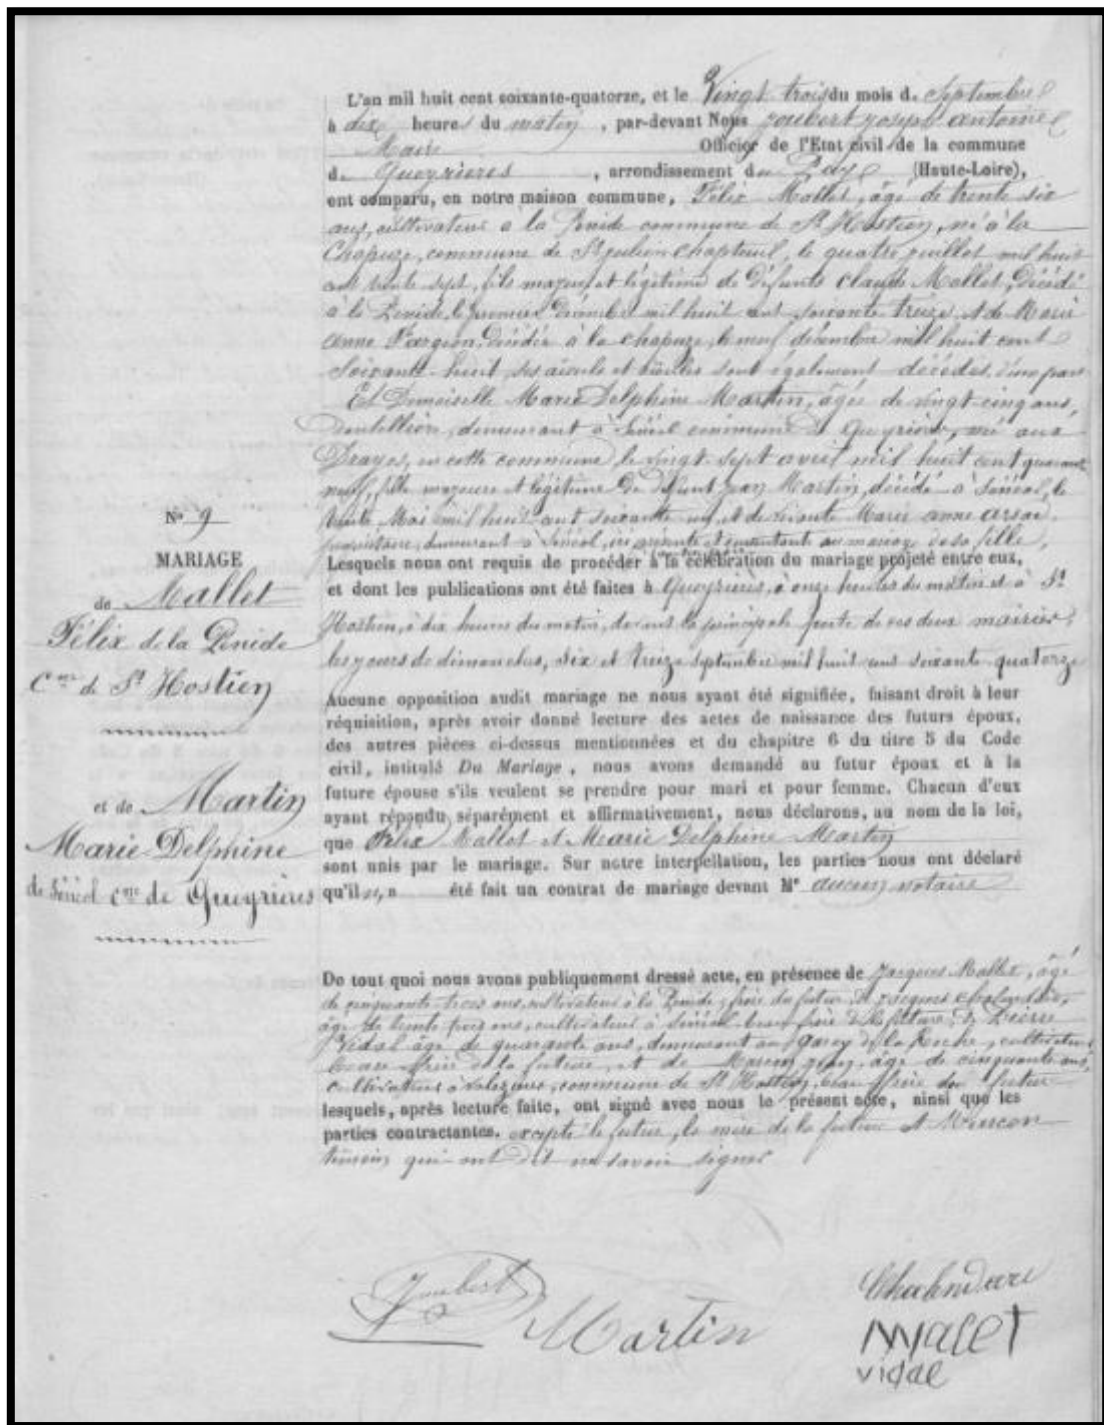 L'an mil huit cent soixante-quatorze, et le Vingt trois du mois d. Septembre
à dix heures du matin, par-devant Nous Joubert Joseph antoine
Maire Officier de l'Etat civil de la commune
de Queyrières, arrondissement du Puy (Haute-Loire),
ont comparu, en notre maison commune, Félix Mallet, âgé de trente six
ans, cultivateur à la Penide commune de St Hostien, né à la
Chapuze, commune de St julien Chapteuil, le quatre juillet mil huit
cent trente sept, fils majeur et légitime de défunts Claude Mallet, décédé
à la Penide, le premier Décembre mil huit cent soixante treize, et de Marie
anne décédée à la chapuze, le neuf décembre mil huit cent
soixante-huit, ses aïeuls et aïeules sont également décédés, d'une part
Et Demoiselle Marie Delphine Martin, âgée de vingt-cinq ans,
Dentellière, demeurant à Sinéol commune de Queyrières, née aux
Drayes, en cette commune, le vingt-sept avril mil huit cent quarante
neuf, fille majeure et légitime de défunt jean Martin, décédé à Sinéol, le
trente Mai mil huit cent soixante un, et de vivante Marie anne
propriétaire, demeurant à Sinéol, ici présente et consentante au mariage de sa fille,
Lesquels nous ont requis de procéder à la célébration du mariage projeté entre eux,
et dont les publications ont été faites à Queyrières, à onze heures du matin et à St
Hostien, à dix heures du matin, devant la principale porte de ces deux mairies,
les jours de dimanches, six et treize septembre mil huit cent soixante quatorze
Aucune opposition audit mariage ne nous ayant été signifiée, faisant droit à leur
réquisition, après avoir donné lecture des actes de naissance des futurs époux,
des autres pièces ci-dessus mentionnées et du chapitre 6 du titre 5 du Code
civil, intitulé Du Mariage, nous avons demandé au futur époux et à la
future épouse s'ils veulent se prendre pour mari et pour femme. Chacun d'eux
ayant répondu séparément et affirmativement, nous déclarons, au nom de la loi,
que Félix Mallet et Marie Delphine Martin
sont unis par le mariage. Sur notre interpellation, les parties nous ont déclaré
qu'il n'a été fait un contrat de mariage devant Me aucun notaire
De tout quoi nous avons publiquement dressé acte, en présence de Jacques Mallet, âgé
de cinquante-trois ans, cultivateur à la Penide, frère du futur, et Jacques
âgé de trente trois ans, cultivateur à Sinéol beau frère de la future, de Pierre
Vidal âgé de quarante ans, demeurant au de la Roche, cultivateur
beau frère de la future, et de jean, âgé de cinquante ans,
cultivateur à commune de St Hostien, beau frère du futur
lesquels, après lecture faite, ont signé avec nous le présent acte, ainsi que les
parties contractantes. excepté le futur, la mère de la future et
témoin qui ont dit ne savoir signer
No 9
MARIAGE
de Mallet
Félix de la Penide
Cne de St Hostien
et de Martin
Marie-Delphine
de Sinéol Cne de Queyrières
Joubert
Martin
Malet
vidal